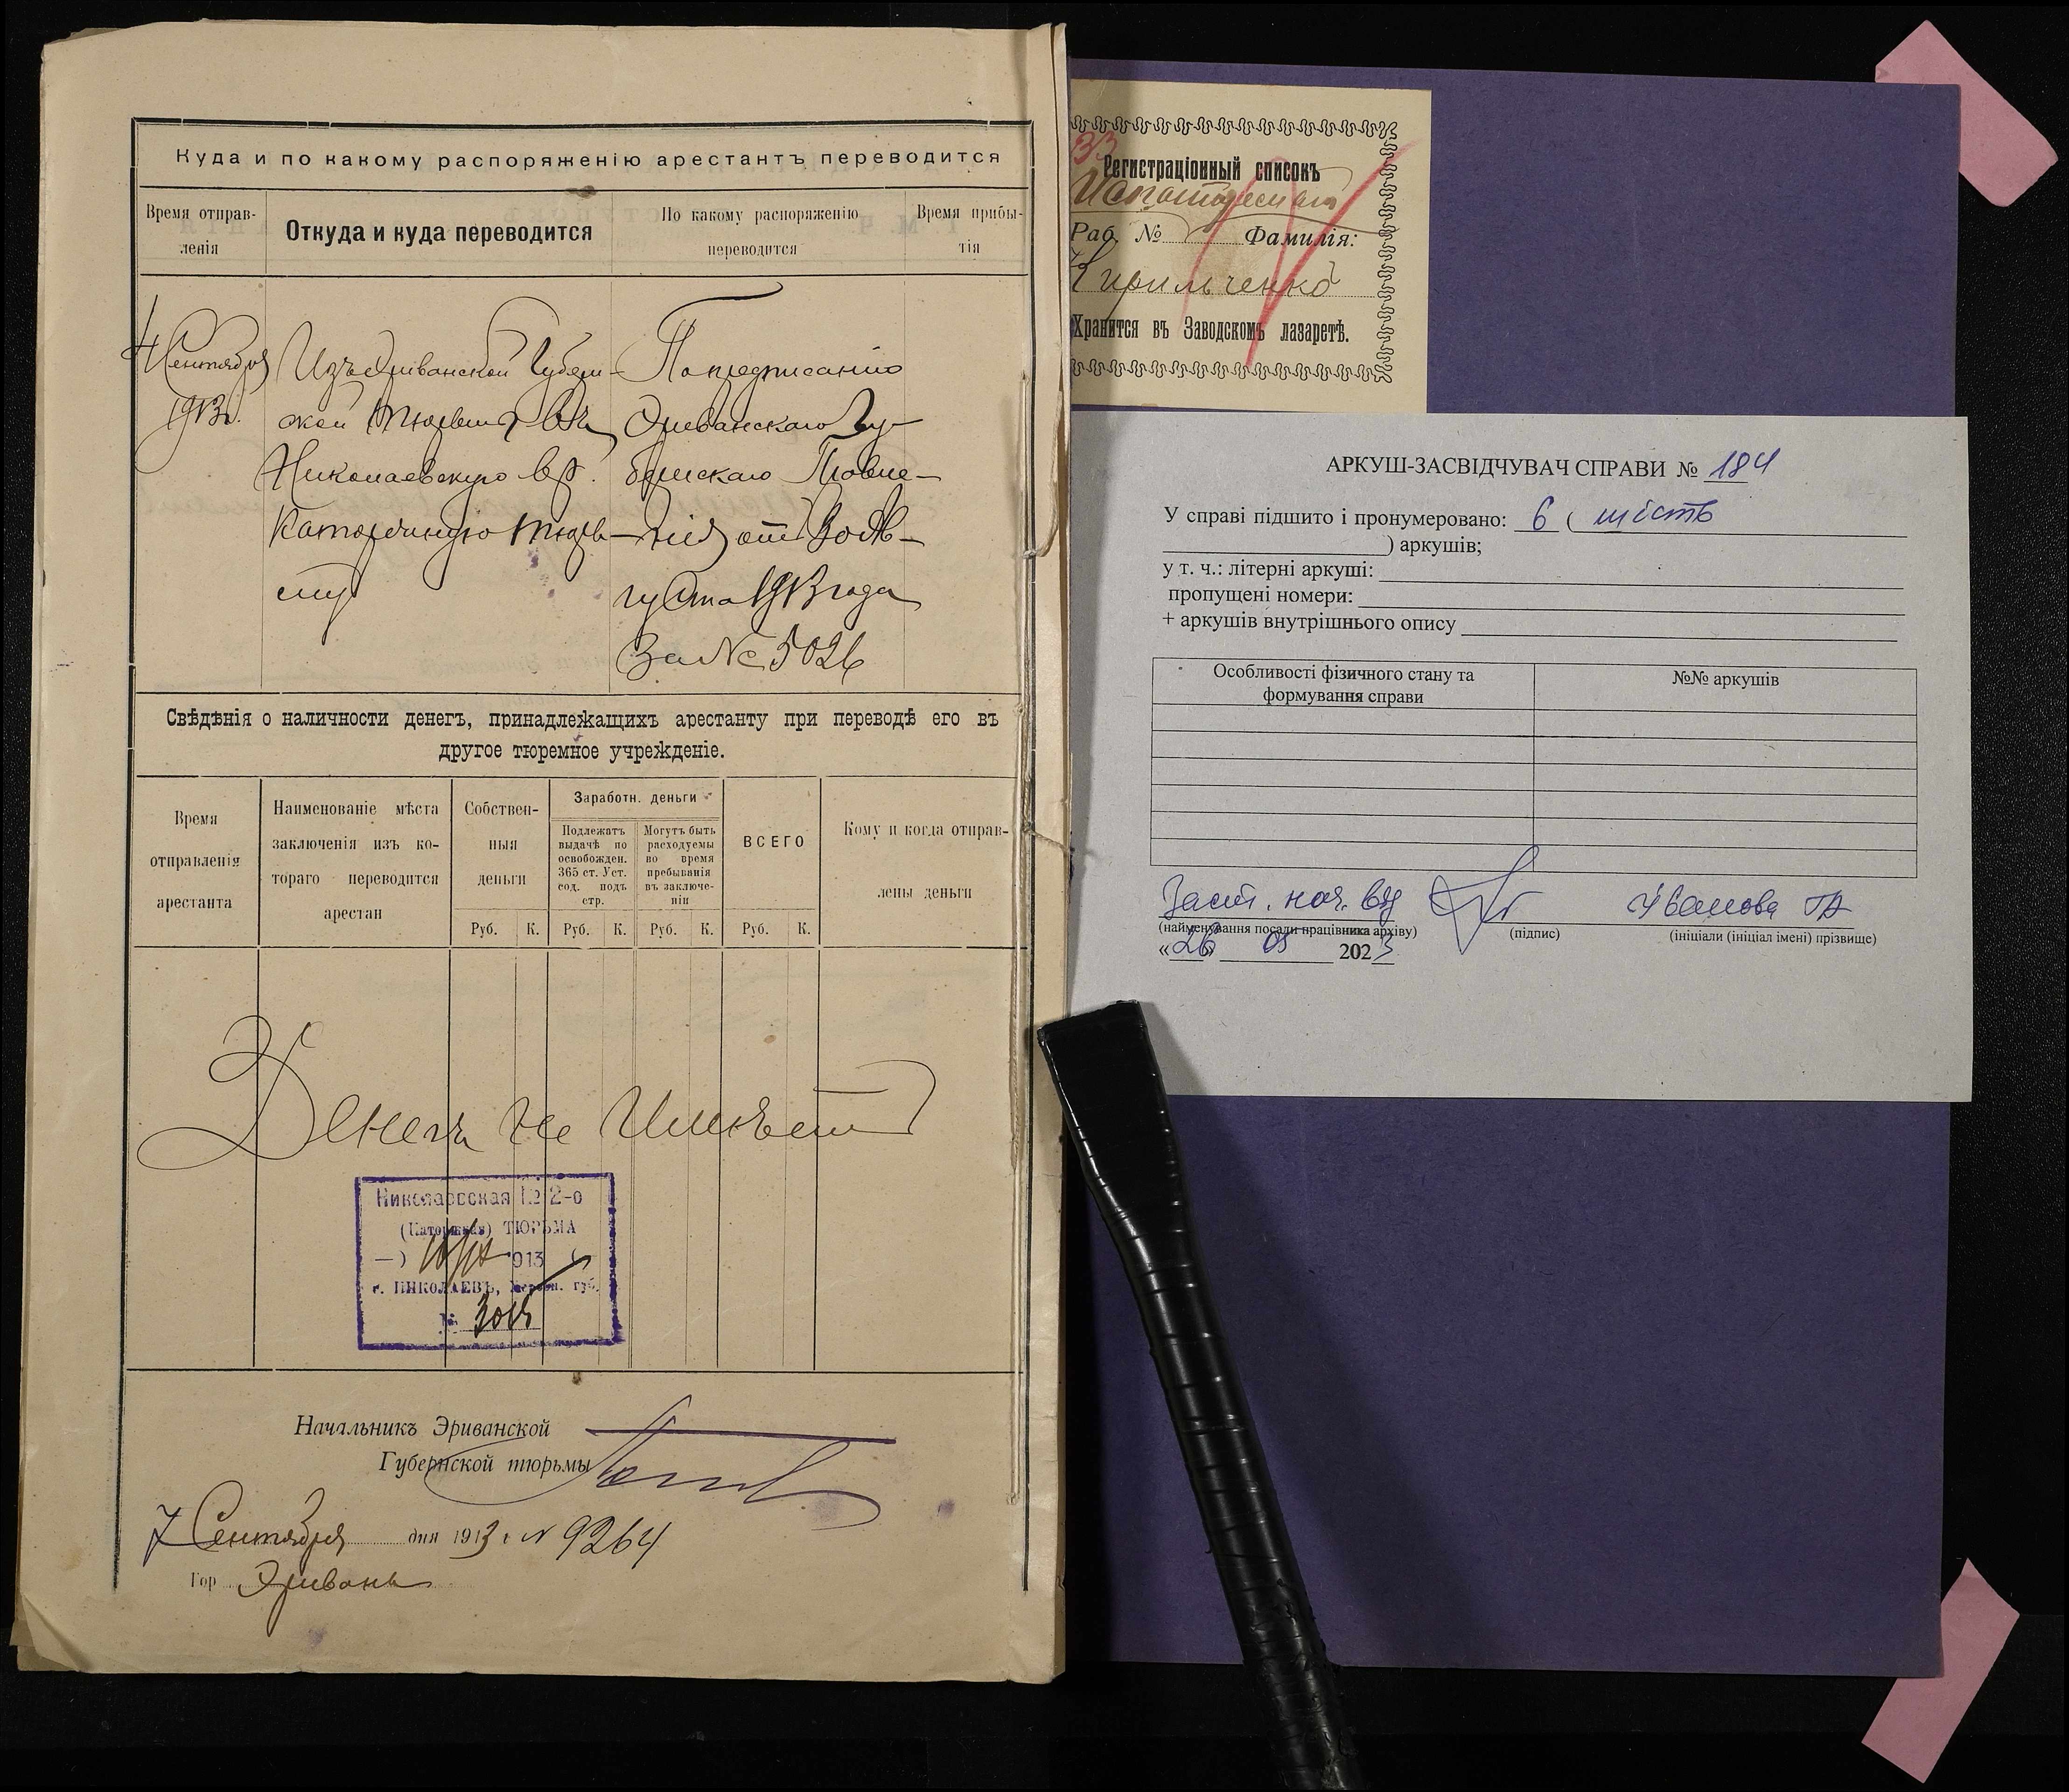 Куда и по какому распоряженію арестантъ переводится
Время отправ-
ленія
Откуда и куда переводится
По какому распоряженію
переводится
Время прибы-
тія
Сентября
1913г.
Изъ Эриванской Губерн-
ской Тюрьмы въ
Николаевскую вр.
Каторжную тюрь-
му
По предписанію
Эриванскаго Гу-
бернскаго Правле-
нія отъ 30 Ав-
густа 1913 года
За № 5026
Свѣдѣнія о наличности денегъ, принадлежащихъ арестанту при переводѣ его въ
другое тюремное учрежденіе.
Время
отправленія
арестанта
Наименованіе мѣста
заключенія изъ ко-
тораго переводится
арестан
Собствен-
ныя
деньги
Заработн. деньги
Подлежатъ
выдачѣ по
освобожден.
365 ст. Уст.
сод. подъ
стр.
Могутъ быть
расходуемы
во время
пребыванія
въ заключе-
ніи
ВСЕГО
Кому и когда отправ-
лены деньги
Руб. К. Руб. К. Руб. К. Руб. К.
Денегъ не Имѣетъ
Николаевская № 2-о
(Каторжная) ТЮРЬМА
913
г. НИКОЛАЕВЪ, Херсон. губ.
№
Начальникъ Эриванской
Губернской тюрьмы
7 Сентября дня 1913 г. № 9264
Гор. Эривань
33
Регистраціонный списокъ
Раб. № Фамилія:
Кирильченко
Хранится въ Заводскомъ лазаретѣ.
АРКУШ-ЗАСВІДЧУВАЧ СПРАВИ № 184
У справі підшито і пронумеровано: 6 ( шість
) аркушів;
у т. ч.: літерні аркуші:
пропущені номери:
+ аркушів внутрішнього опису
Особливості фізичного стану та
формування справи
№№ аркушів
Заст. нач. від Іванова ГА
(найменування посади працівника архіву) (підпис) (ініціали (ініціал імені) прізвище)
«26» 05 2023